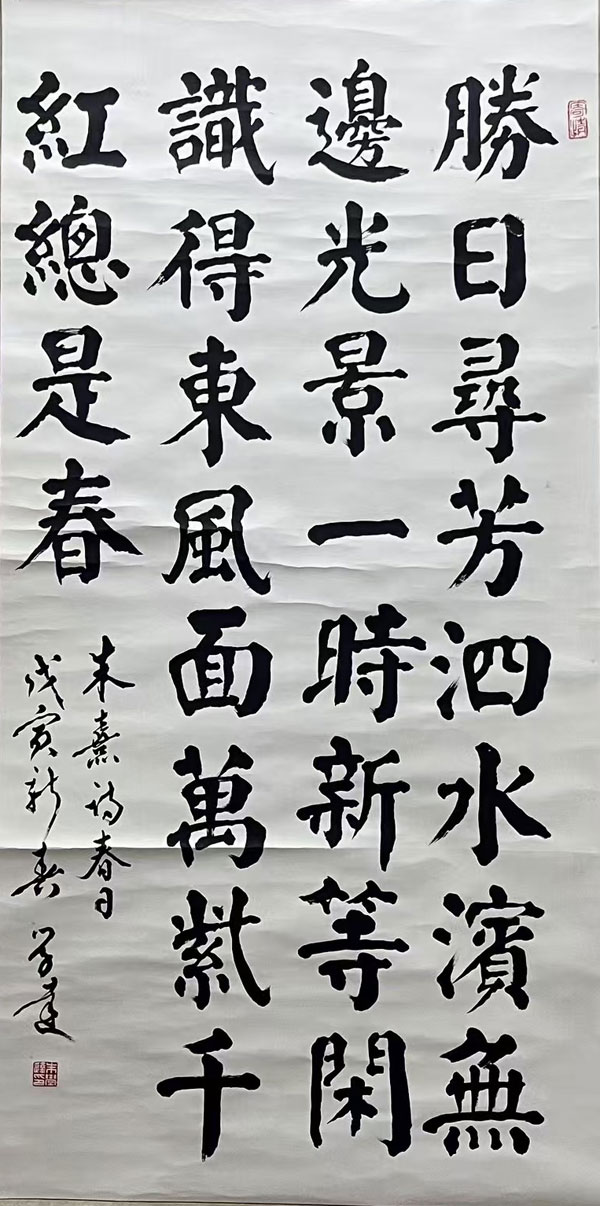 勝日尋芳泗水濱無
邊光景一時新等閑
識得東風面萬紫千
紅總是春
朱熹詩春日
戊寅新春